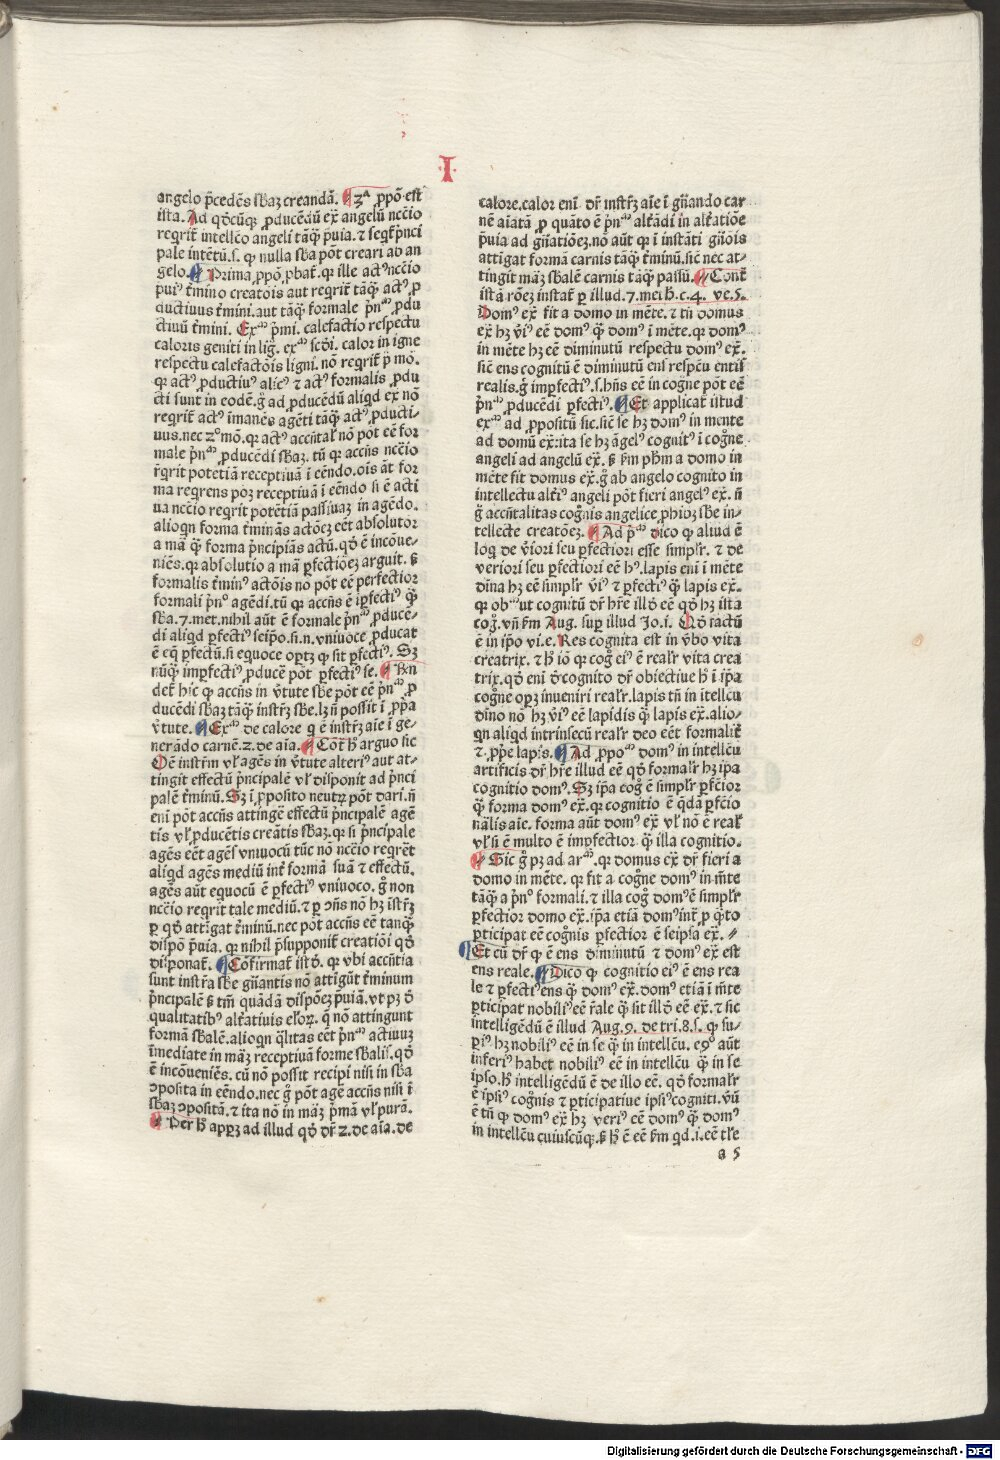 I
angelo p̄cedēs sbaꝫ creandā. 3ᵃ ꝓpō est
ista. Ad qd̄cūqꝫ ꝓducēdū ex̄ angelū nc̄cio
reqrit̄ intellc̄o angeli tāqꝫ p̄uia. ⁊ seqt̄ p̄nci
pale intētū.s. ꝙ nulla sba pōt creari ab an
gelo. Prima ꝓpō ꝓbat̄. qꝛ ille actꝰ nc̄cio
puiꝰ t̄mino creatōis aut reqrit̄ tāqꝫ actꝰ ꝓ
ductiuus t̄mini. aut tāqꝫ formale p̄nᵐ ꝓdu
ctiuū t̄mini. Exᵐ p̄mi. calefactio respectu
caloris geniti in liḡ. exᵐ scd̄i. calor in igne
respectu calefactōis ligni. nō reqrit̄ p̄ mō.
qꝛ actꝰ ꝓductiuꝰ alicꝰ ⁊ actꝰ formalis ꝓdu
cti sunt in eodē. g̊ ad ꝓducēdū aliqd ex nō
reqrit̄ actꝰ imanēs agēti tāqꝫ actꝰ ꝓducti-
uus. nec 2ᵒ mō. qꝛ actꝰ accn̄tal̓ nō pōt eē for
male p̄nᵐ ꝓducēdi sbaꝫ. tū qꝛ accn̄s nc̄cio
r̄qrit potētiā receptiuā ī eēndo. oīs āt for
ma reqrens poꝫ receptiuā ī eēndo si ē acti
ua nc̄cio reqrit potētiā passiuaꝫ in agēdo.
alioqn forma t̄mināns actōeꝫ eēt absolutor
a mā qꝫ forma p̄ncipiās actū. qd̄ ē incōue-
niēs. qꝛ absolutio a mā ꝑfectiōeꝫ arguit. sꝫ
formalis t̄minꝰ actōis nō pōt eē perfectior
formali p̄nᵒ agēdi. tū qꝛ accn̄s ē īꝑfectiꝰ qꝫ
sba. 7. met. nihil aūt ē formale p̄nᵐ ꝓduce-
di aliqd ꝑfectiꝰ seip̄o. si.n. vniuoce ꝓducat
ē eq̄ ꝑfectū. si equoce oportꝫ ꝙ sit ꝑfectiꝰ. Sꝫ
nūqꝫ imꝑfectiꝰ ꝓducē pōt ꝑfectiꝰ se. Rn̄
det̄ hīc ꝙ accn̄s in v̄tute sbe pōt eē p̄nᵐ ꝓ
ducēdi sbaꝫ tāqꝫ instr̄ꝫ sbe. lꝫ n̄ possit ī ꝓp̄a
v̄tute. Exᵐ de calore q ē instr̄ꝫ aīe ī ge-
nerādo carnē. 2. de aīa. Cōt̄ h̄ arguo sic
Oē instr̄m vl̓ agēs in v̄tute alteriꝰ aut at-
tingit effectū p̄ncipalē vl̓ disponit ad p̄nci
palē t̄minū. Sꝫ ī ꝓposito neutꝝ pōt dari. n̄
eni pōt accn̄s attingē effectū p̄ncipalē agē
tis vl̓ ꝓducētis creātis sbaꝫ. qꝛ si p̄ncipale
agēs eēt agēs vniuocū tūc nō nc̄cio reqrēt
aliqd agēs mediū int̄ formā suā ⁊ effectū.
agēs aūt equocū ē ꝑfectiꝰ vniuoco. g̊ non
nc̄cio reqrit tale mediū. ⁊ ꝑ ↄn̄s nō hꝫ istr̄ꝫ
ꝑ qd̄ attīgat t̄minū. nec pōt accn̄s eē tanqꝫ
dispō p̄uia. qꝛ nihil p̄supponit̄ creatiōi qd̄
disponat̄. Cōfirmat̄ istd̄. qꝛ vbi accn̄tia
sunt instr̄a sbe gn̄antis nō attīgūt t̄minum
p̄ncipalē sꝫ tm̄ quādā dispōeꝫ p̄uiā. vt pꝫ d̄
qualitatibꝰ alt̄atiuis el̓oꝝ. q̄ nō attingunt
formā sbalē. alioqn q̄litas eēt p̄nᵐ actiuuꝫ
īmediate in māꝫ receptiuā forme sbalis. qd̄
ē incōueniēs. cū nō possit recipi nisi in sba
ↄposita in eēndo. nec g̊ pōt agē accn̄s nisi ī
sbaꝫ ↄpositā. ⁊ ita nō in māꝫ p̄mā vl̓ purā.
Per h̄ apꝑꝫ ad illud qd̄ dr̄ 2. de aīa. de
calore. calor enī dr̄ instr̄ꝫ aīe ī gn̄ando car
nē aīatā ꝓ quāto ē p̄nᵐ alt̄ādi in alt̄atiōe
p̄uia ad gn̄atiōeꝫ. nō aūt qꝛ ī instāti gn̄ōis
attigat formā carnis tāqꝫ t̄minū. sic̄ nec at-
tingit māꝫ sbalē carnis tāqꝫ passū. Cont̄
istā rōeꝫ instat̄ ꝑ illud. 7. methꝰ.c.4. ve.5.
Domꝰ ex̄ fit a domo in mēte. ⁊ tn̄ domus
ex̄ hꝫ v̄iꝰ eē domꝰ qꝫ domꝰ ī mēte. qꝛ domꝰ
in mēte hꝫ eē diminutū respectu domꝰ ex̄.
sic̄ ens cognitū ē diminutū ens respc̄u entis
realis. g̊ imꝑfectiꝰ.s. hn̄s eē in cogne pōt eē
p̄nᵐ ꝓducēdi ꝑfectiꝰ. Et applicat̄ istud
exᵐ ad ꝓpositū sic. sic̄ se hꝫ domꝰ in mente
ad domū ex̄: ita se hꝫ āgelꝰ cognitꝰ ī cogne
angeli ad angelū ex̄. sꝫ fm̄ phm̄ a domo in
mēte fit domus ex̄. g̊ ab angelo cognito in
intellectu alt̄iꝰ angeli pōt fieri angelꝰ ex̄. n̄
g̊ accn̄talitas cogn̄is angelice ꝓhiboꝫ sbe in-
tellecte creatōeꝫ. Ad pᵐ dico ꝙ aliud ē
loq de v̄iori seu ꝑfectiori esse simplr̄. ⁊ de
veriori seu ꝑfectiori eē hꝰ. lapis enī ī mēte
dīna hꝫ eē simplr̄ v̄iꝰ ⁊ ꝑfectiꝰ qꝫ lapis ex̄.
qꝛ obᵐ ut cognitū dr̄ hr̄e illd̄ eē qd̄ hꝫ ista
cog̊. vn̄ fm̄ Aug. suꝑ illud Jo.i. Qd̄ factū
ē in ip̄o vi.e. Res cognita est in v̄bo vita
creatrix. ⁊ h̄ iō qꝛ cog̊ eiꝰ ē realr̄ vita crea
trix. qd̄ enī v̄cognito dr̄ obiectiue h̄ ī ip̄a
cogne oꝑꝫ inueniri realr̄. lapis tn̄ in itellcu
dīno nō hꝫ v̄iꝰ eē lapidis qꝫ lapis ex̄. alio-
qn aliqd intrinsecū realr̄ deo eēt formalit̄
⁊ ꝓp̄e lapis. Ad ꝓpoᵐ domꝰ in intellc̄u
artificis dr̄ hr̄e illud eē qd̄ formalr̄ hꝫ ip̄a
cognitio domꝰ. Sꝫ ip̄a cog̊ ē simplr̄ ꝑfc̄ior
qꝫ forma domꝰ ex̄. qꝛ cognitio ē q̄dā ꝑfc̄io
nālis aīe. forma aūt domꝰ ex̄ vl̓ nō ē real̓
vl̓ si ē multo ē imꝑfectior qꝫ illa cognitio.
Sic g̊ pꝫ ad arᵐ. qꝛ domus ex̄ dr̄ fieri a
domo in mēte. qꝛ fit a cogne domꝰ in mēte
tāqꝫ a p̄nᵒ formali. ⁊ illa cog̊ domꝰ ē simplr̄
ꝑfectior domo ex̄. ip̄a etiā domꝰ int̄ ꝑ qto
ꝑticipat eē cogn̄is ꝑfectior ē seipsa ex̄.
Et cū dr̄ ꝙ ē ens diminutū ⁊ domꝰ ex̄ est
ens reale. Dico ꝙ cognitio eiꝰ ē ens rea
le ⁊ ꝑfectiꝰ ens qꝫ domꝰ ex̄. domꝰ etiā ī mēte
ꝑticipat nobiliꝰ eē r̄ale qꝫ sit illd̄ eē ex̄. ⁊ sic
intelligēdū ē illud Aug. 9. de tri. 8.s. ꝙ su-
ꝑiꝰ hꝫ nobiliꝰ eē in se qꝫ in intellc̄u. e9ᵒ aūt
inferiꝰ habet nobiliꝰ eē in intellc̄u qꝫ in se
ip̄so. h̄ intelligēdū ē de illo eē. qd̄ formalr̄
ē ip̄siꝰ cogn̄is ⁊ ꝑticipatiue ip̄siꝰ cogniti. vn̄
ē tn̄ ꝙ domꝰ ex̄ hꝫ veriꝰ eē domꝰ qꝫ domꝰ
in intellc̄u cuiuscūqꝫ. sꝫ h̄ ē eē fm̄ qd.i. eē tl̓e
a 5
Digitalisierung gefördert durch die Deutsche Forschungsgemeinschaft - DFG